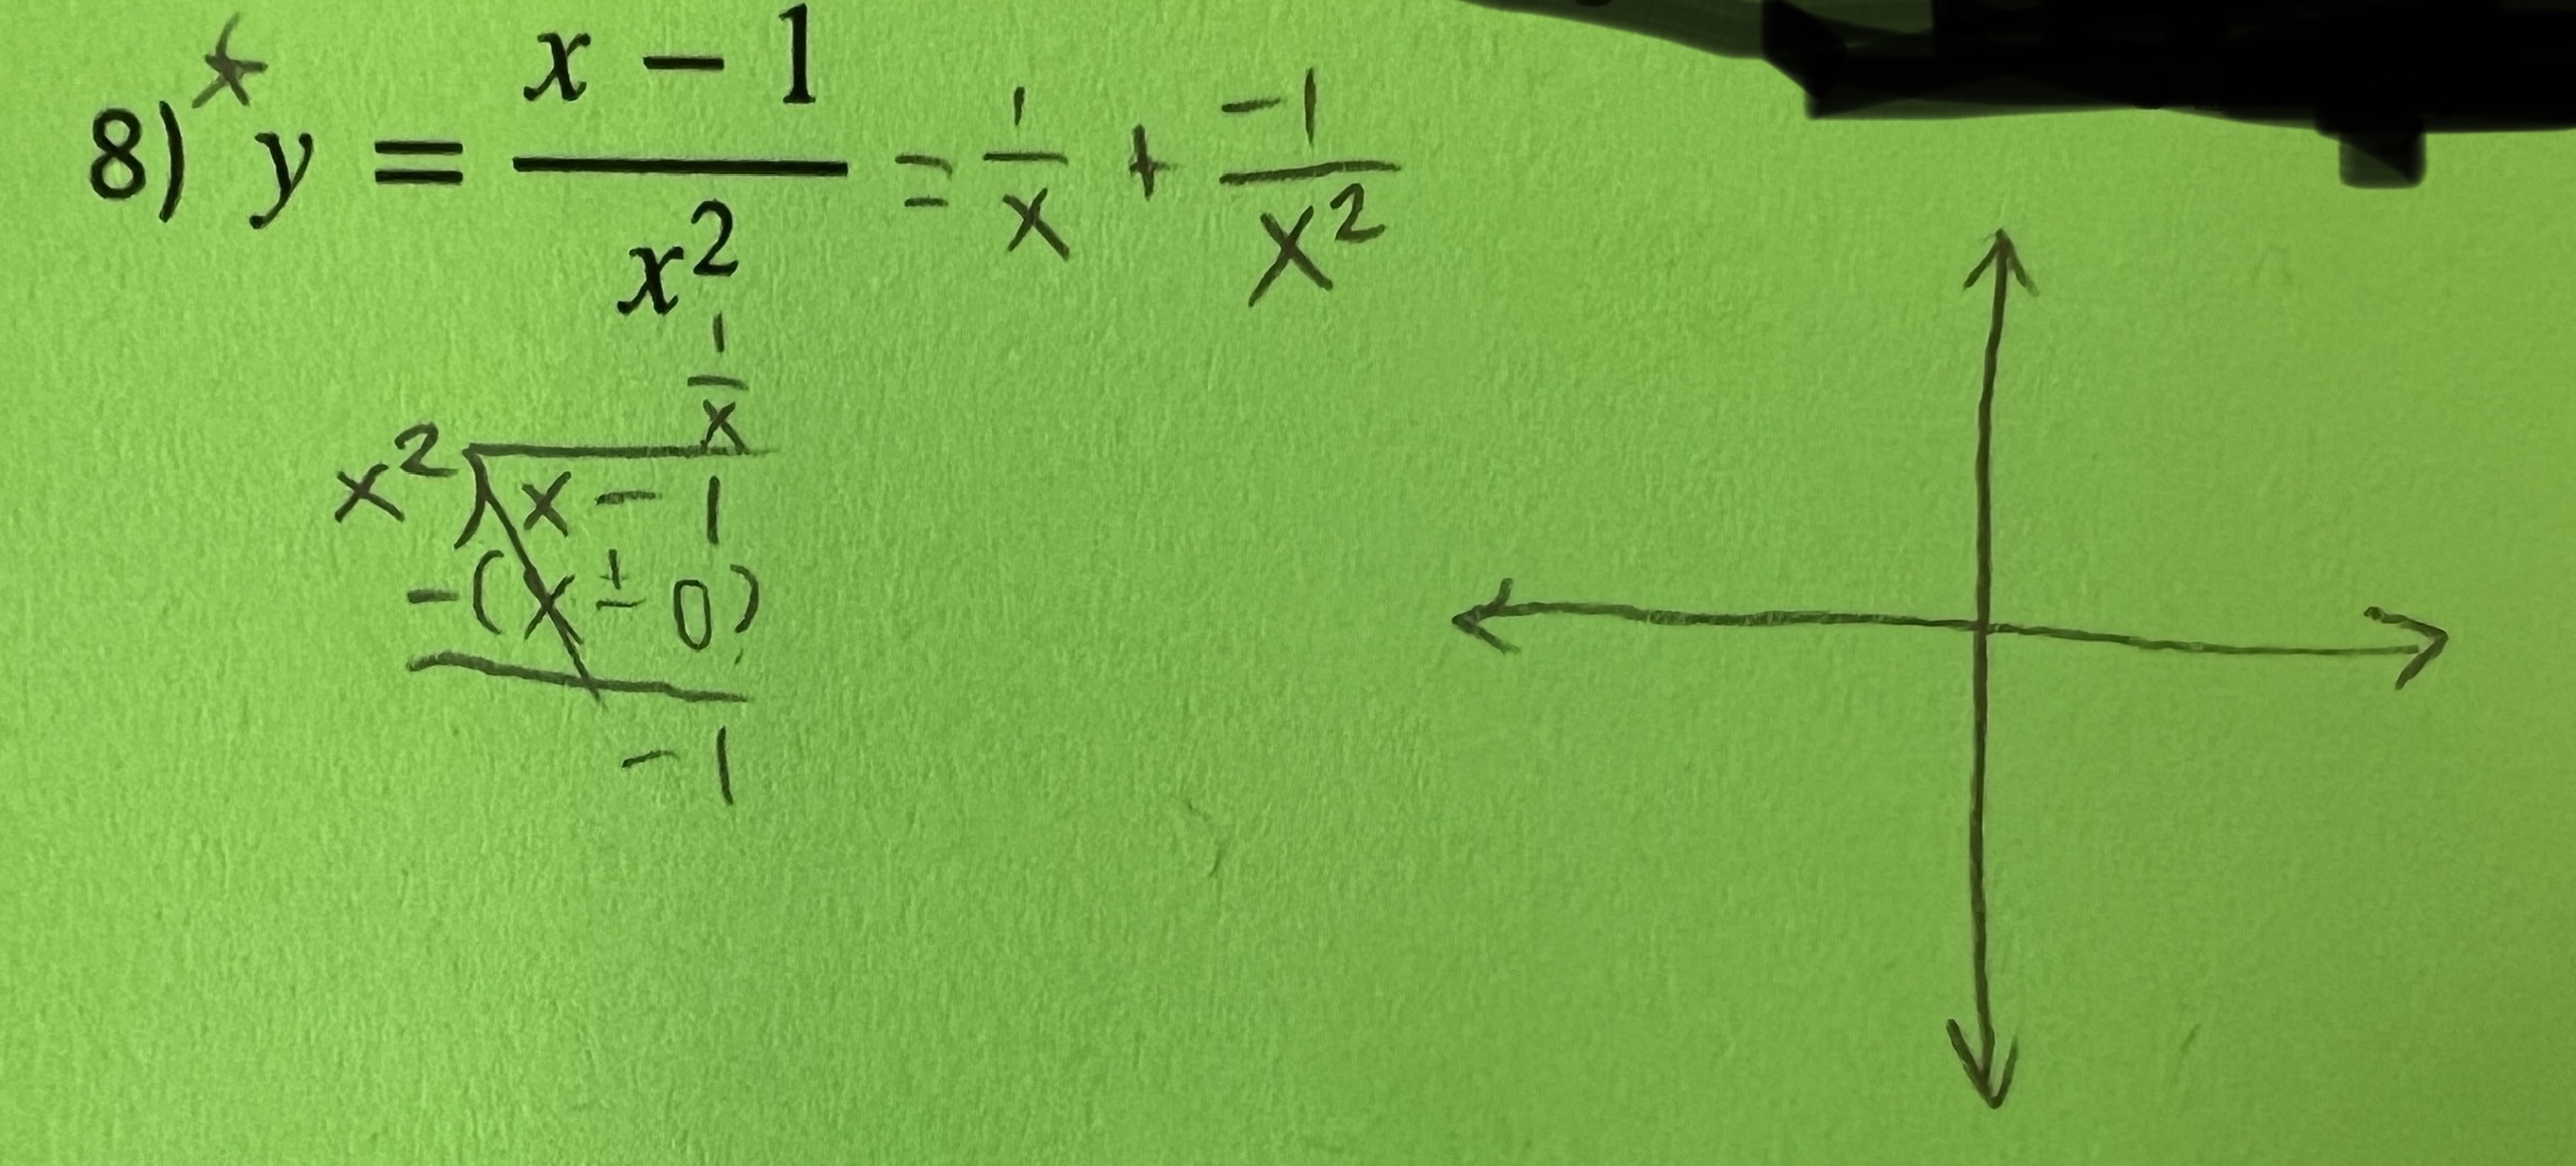 *
8) y = x − 1 / x² = 1/x + −1/x²
1/x
x² ) x − 1
−(x ± 0)
−1